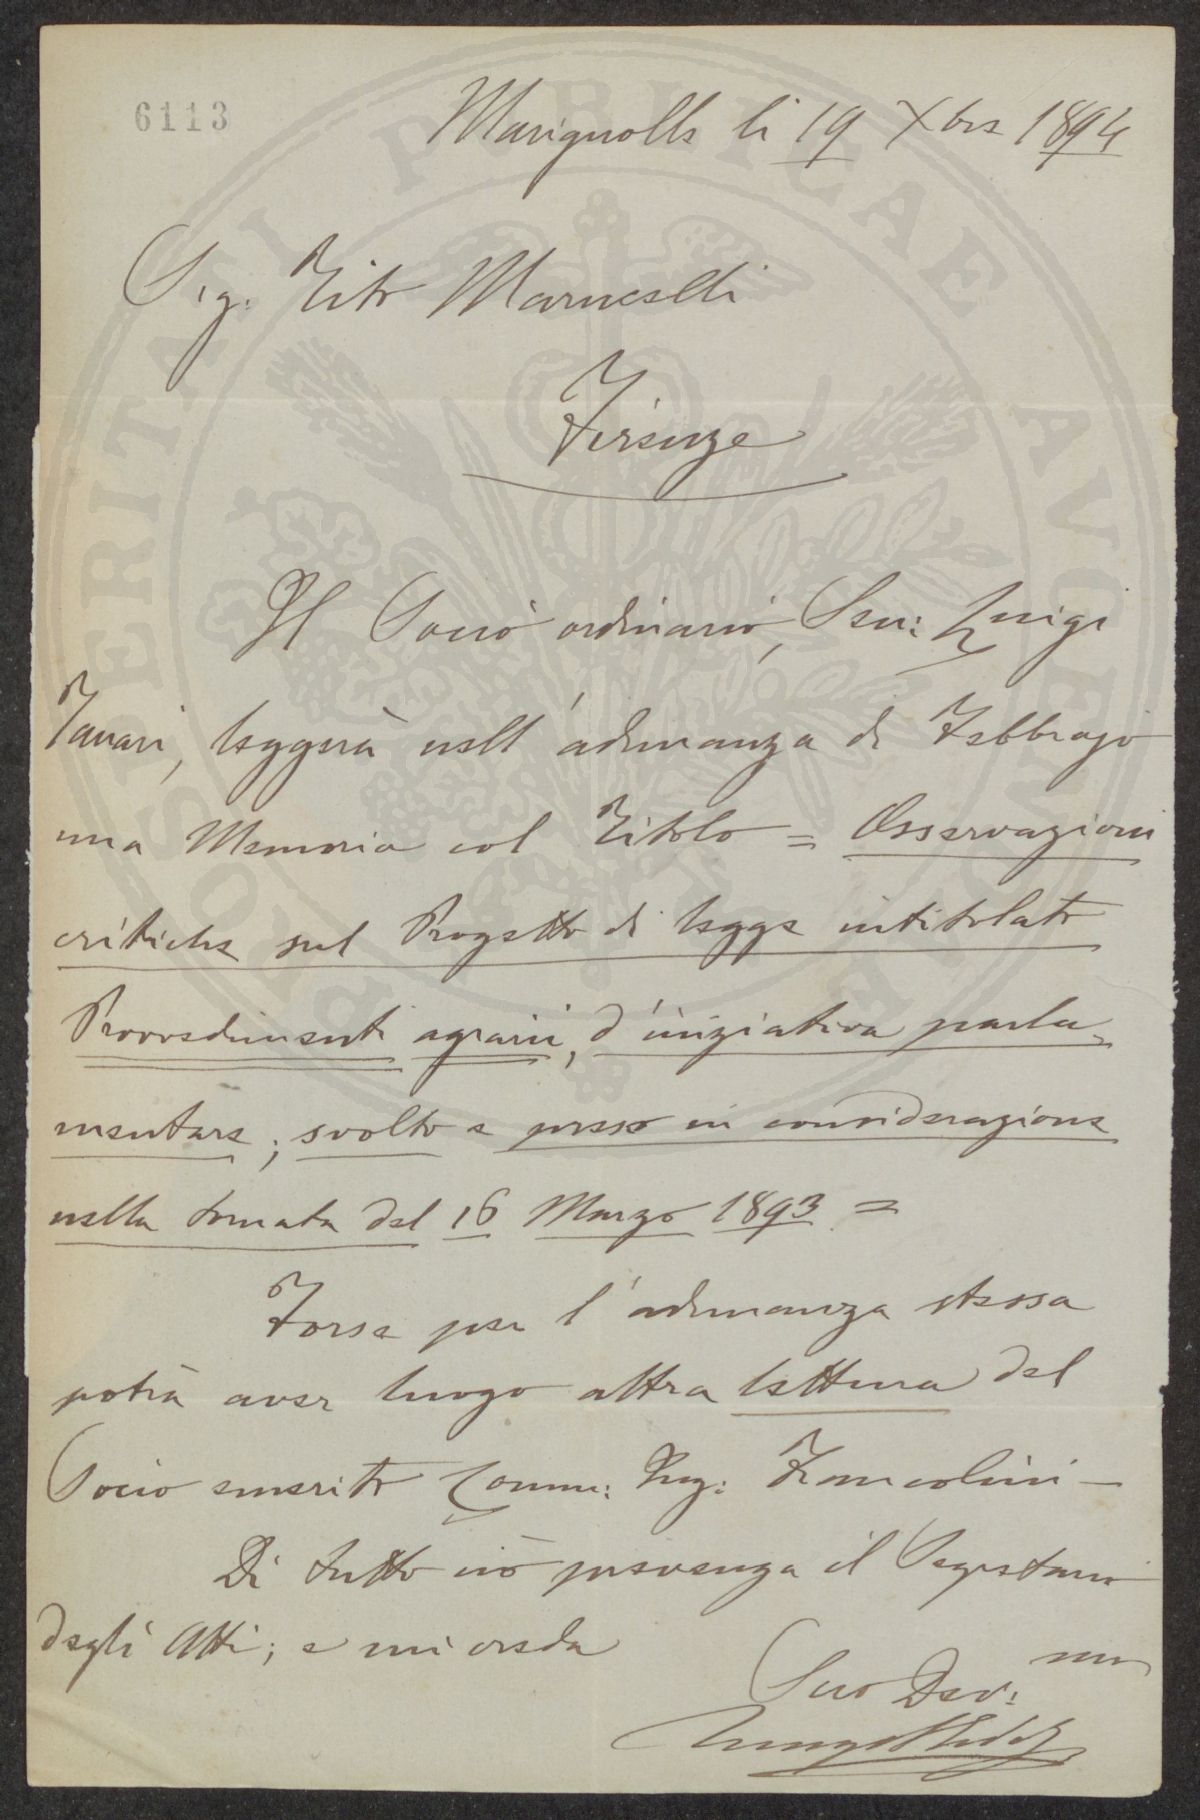 6113
Marignolle li 19 Xbre 1894
Sig. Tito Marucelli
Firenze
Il Socio ordinario, Sen: Luigi
Tanari, leggerà nell'adunanza di Febbrajo
una Memoria col Titolo = Osservazioni
critiche sul Progetto di legge intitolato
Provvedimenti agrari, d'iniziativa parla-
mentare, svolto e preso in considerazione
nella tornata del 16 Marzo 1893 =
Forse per l'adunanza stessa
potrà aver luogo altra lettura del
Socio emerito Comm: Ing: Francolini —
Di tutto ciò prevenga il Segretario
degli Atti; e mi creda
Suo Dev:mo
PROSPERITATI PUBLICAE AVGENDAE